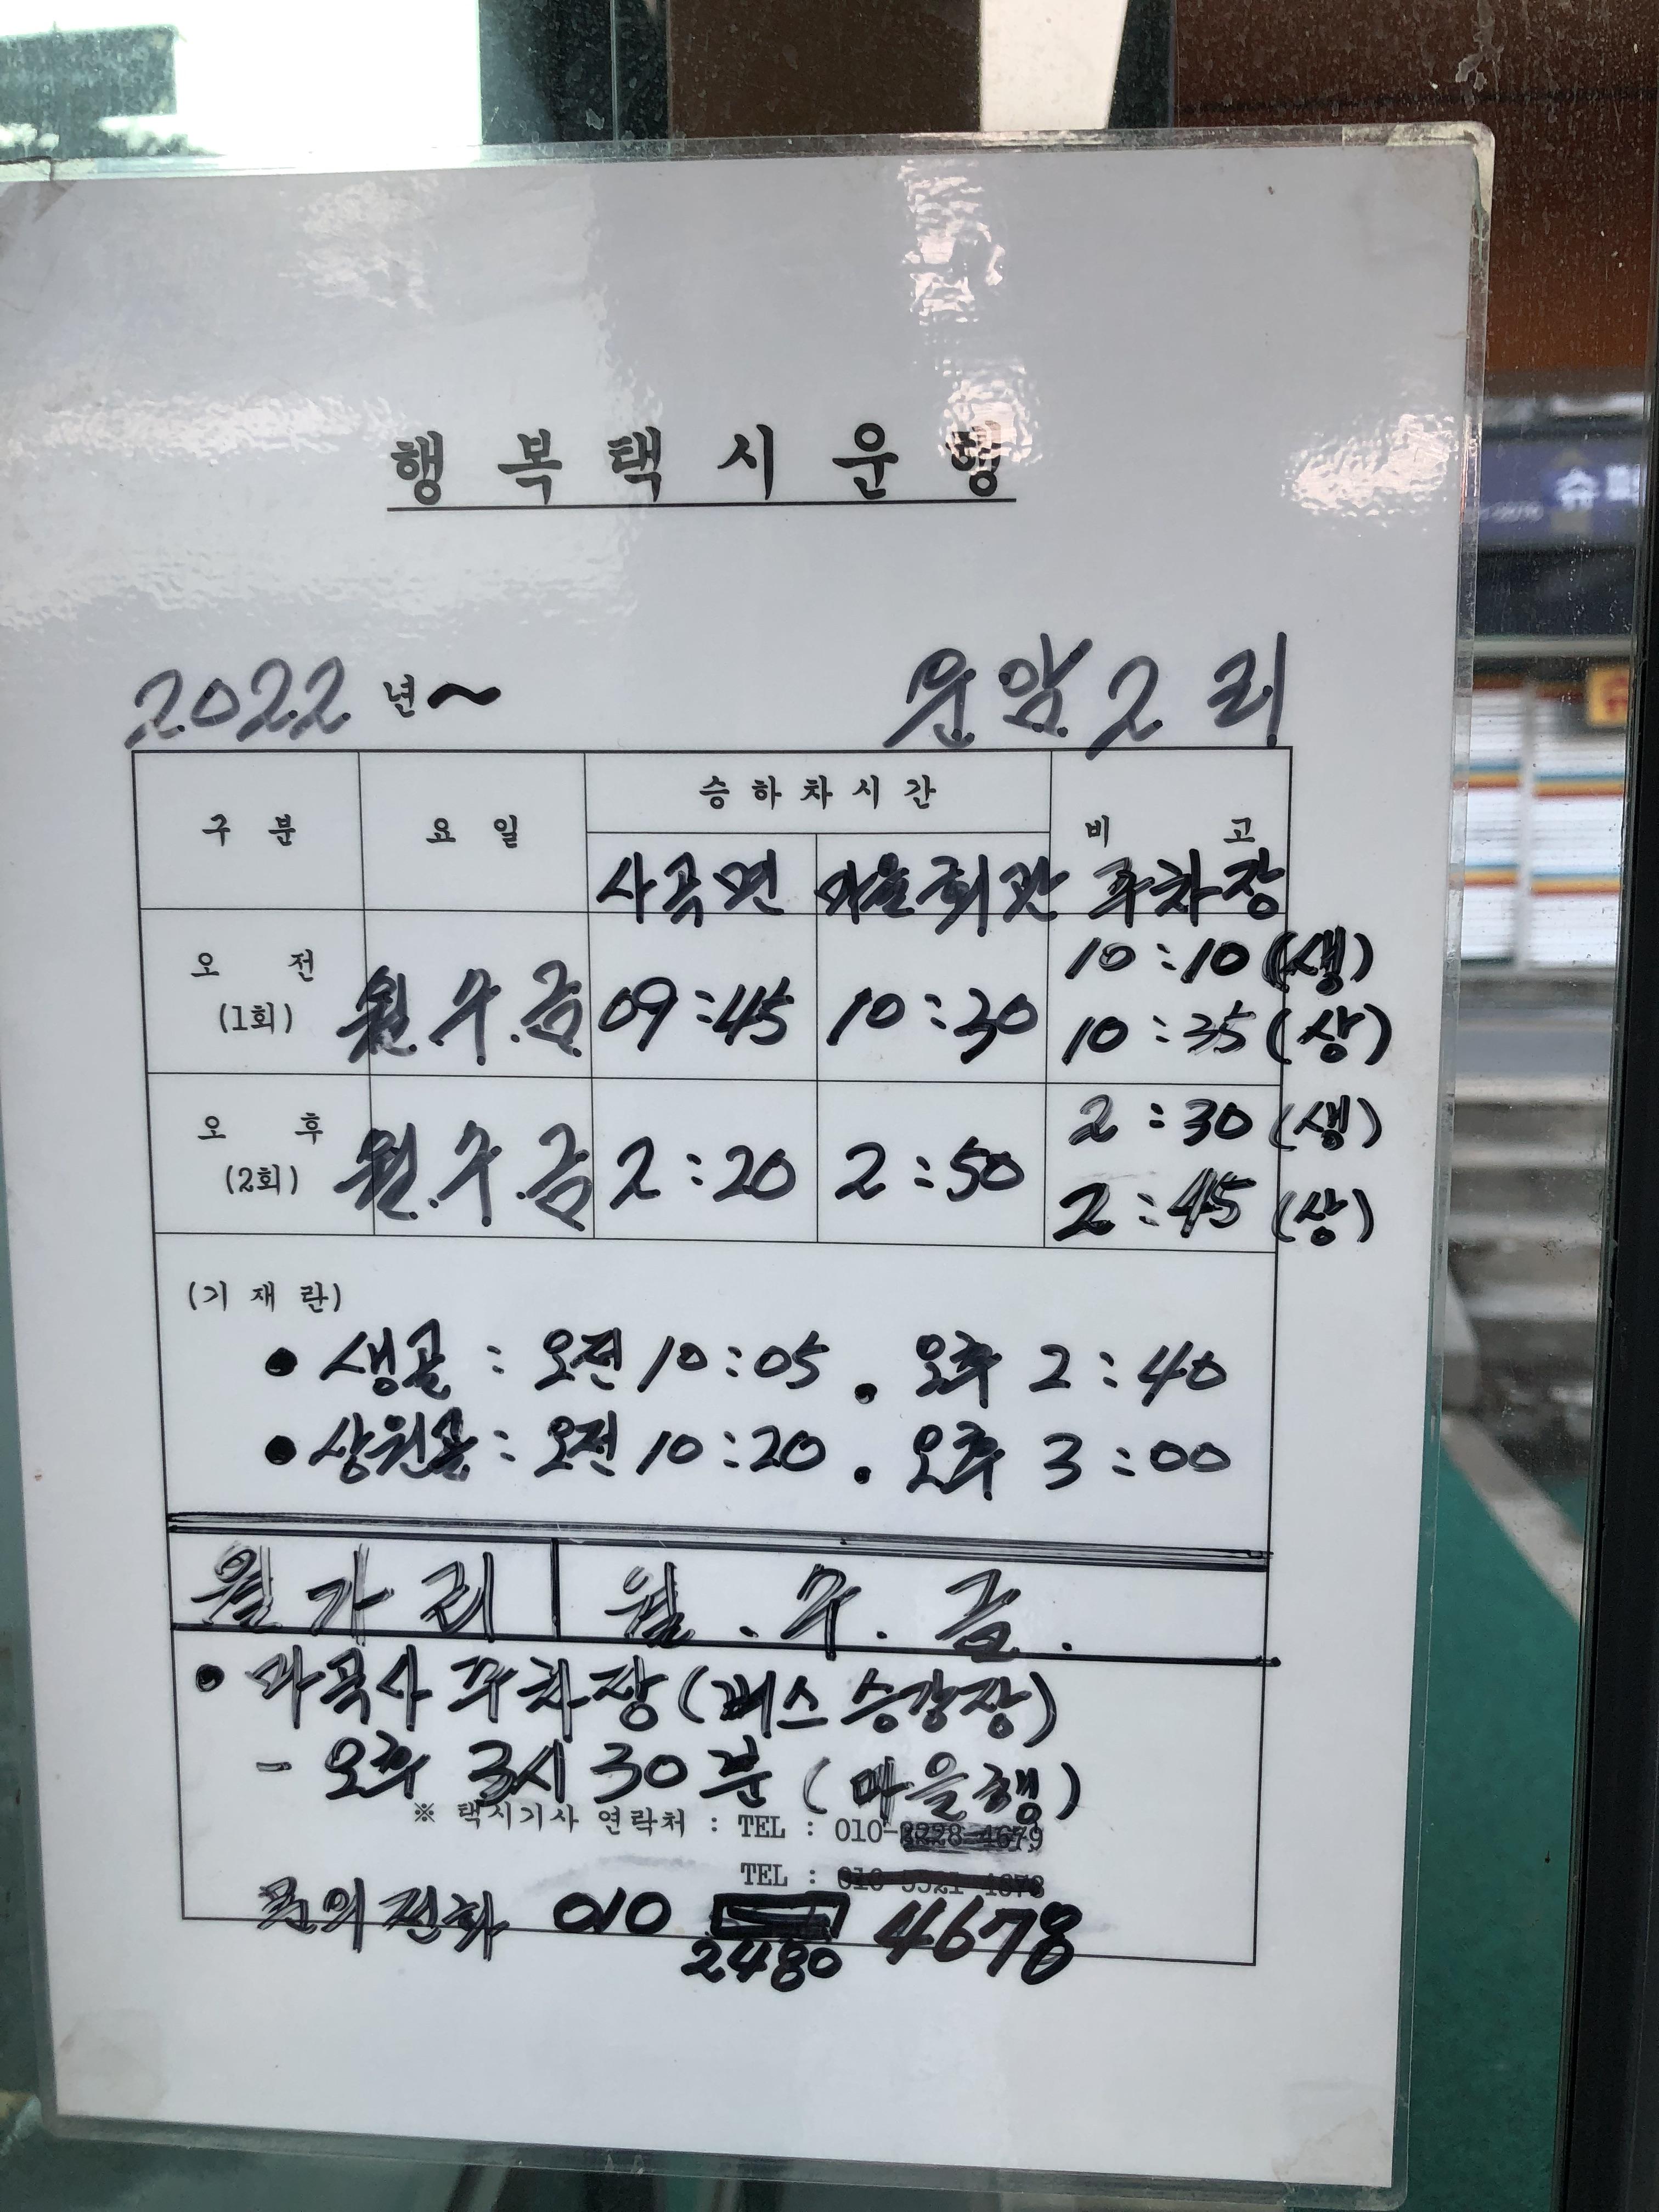 행 복 택 시 운 행
2022 년~ 운암 2 리
구 분 요 일 승 하 차 시 간 비 고
사곡면 마을회관 주차장
오 전 (1회) 월.수.금 09:45 10:30 10:10 (생)
10:35 (상)
오 후 (2회) 월.수.금 2:20 2:50 2:30 (생)
2:45 (상)
(기 재 란)
● 생골 : 오전 10:05 . 오후 2:40
● 상원골 : 오전 10:20 . 오후 3:00
월가리 월 . 수 . 금 .
● 마곡사 주차장 (버스 승강장)
- 오후 3시 30분 (마을행)
※ 택시기사 연락처 : TEL : 010-
TEL :
문의전화 010 2480 4678
슈